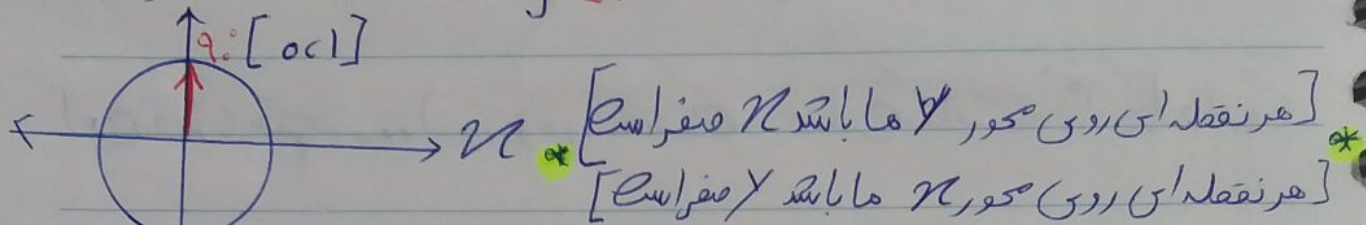 90°: [0,1]
x
* [هر نقطه ای روی محور y ما باشد x صفر است] *
[هر نقطه ای روی محور x ما باشد y صفر است]